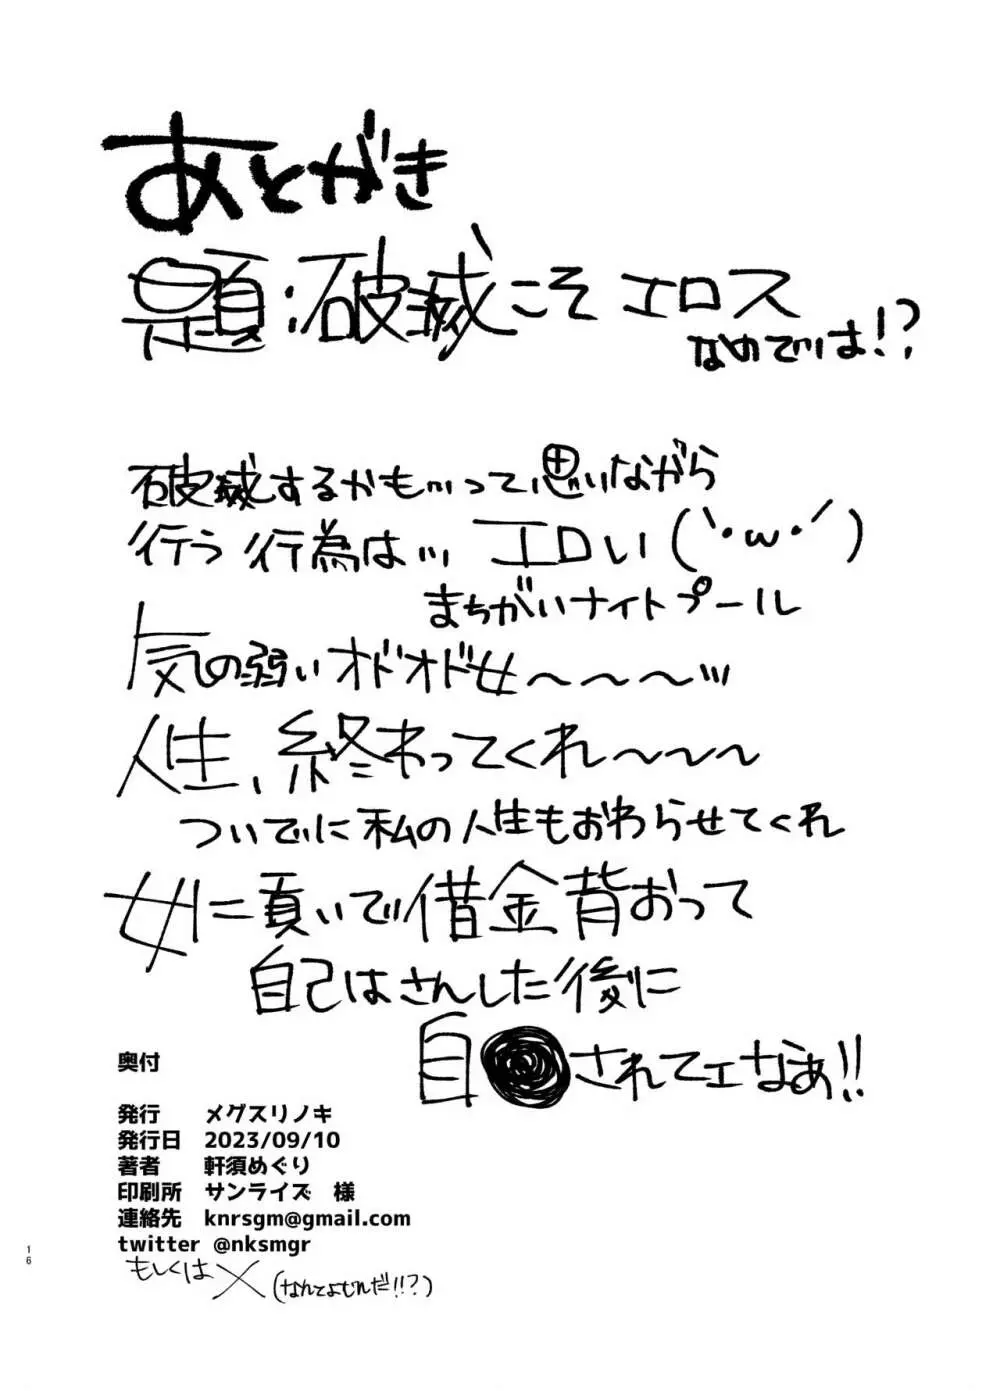 あとがき
題:破滅こそエロス
なのでは!?
破滅するかも…って思いながら
行う行為は… エロい(`・ω・´)
まちがいナイトプール
気の弱いオドオド女〜〜〜…
人生、終わってくれ〜〜〜
ついでに私の人生もおわらせてくれ
女に貢いで借金背おって
自己はさんした後に
自●されてェなぁ!!
奥付
発行 メグスリノキ
発行日 2023/09/10
著者 軒須めぐり
印刷所 サンライズ 様
連絡先 knrsgm@gmail.com
twitter @nksmgr
もしくはX(なんてよむんだ!!?)
16